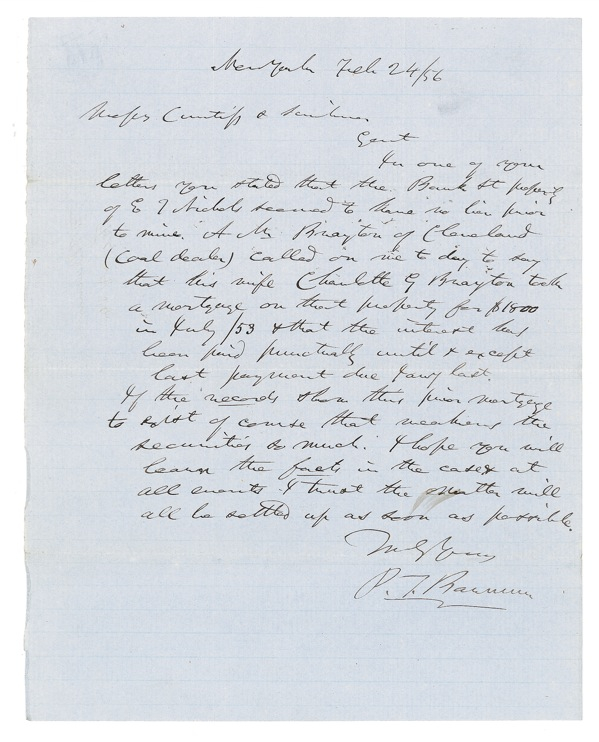 New York Feb 24/56
Messrs Curtiss & Scribner
Gent
In one of your
letters you stated that the Bank St property
of E T Nichols seemed to have no lien prior
to mine. A Mr Brayton of Cleveland
(Coal dealer) called on me to day to say
that his wife Charlotte G Brayton took
a mortgage on that property for $1800
in July /53 & that the interest has
been paid punctually until & except
last payment due Jany last.
If the records show this prior mortgage
to exist of course that weakens the
securities so much. I hope you will
learn the facts in the case & at
all events I trust the matter will
all be settled up as soon as possible.
Truly Yours
P. T. Barnum